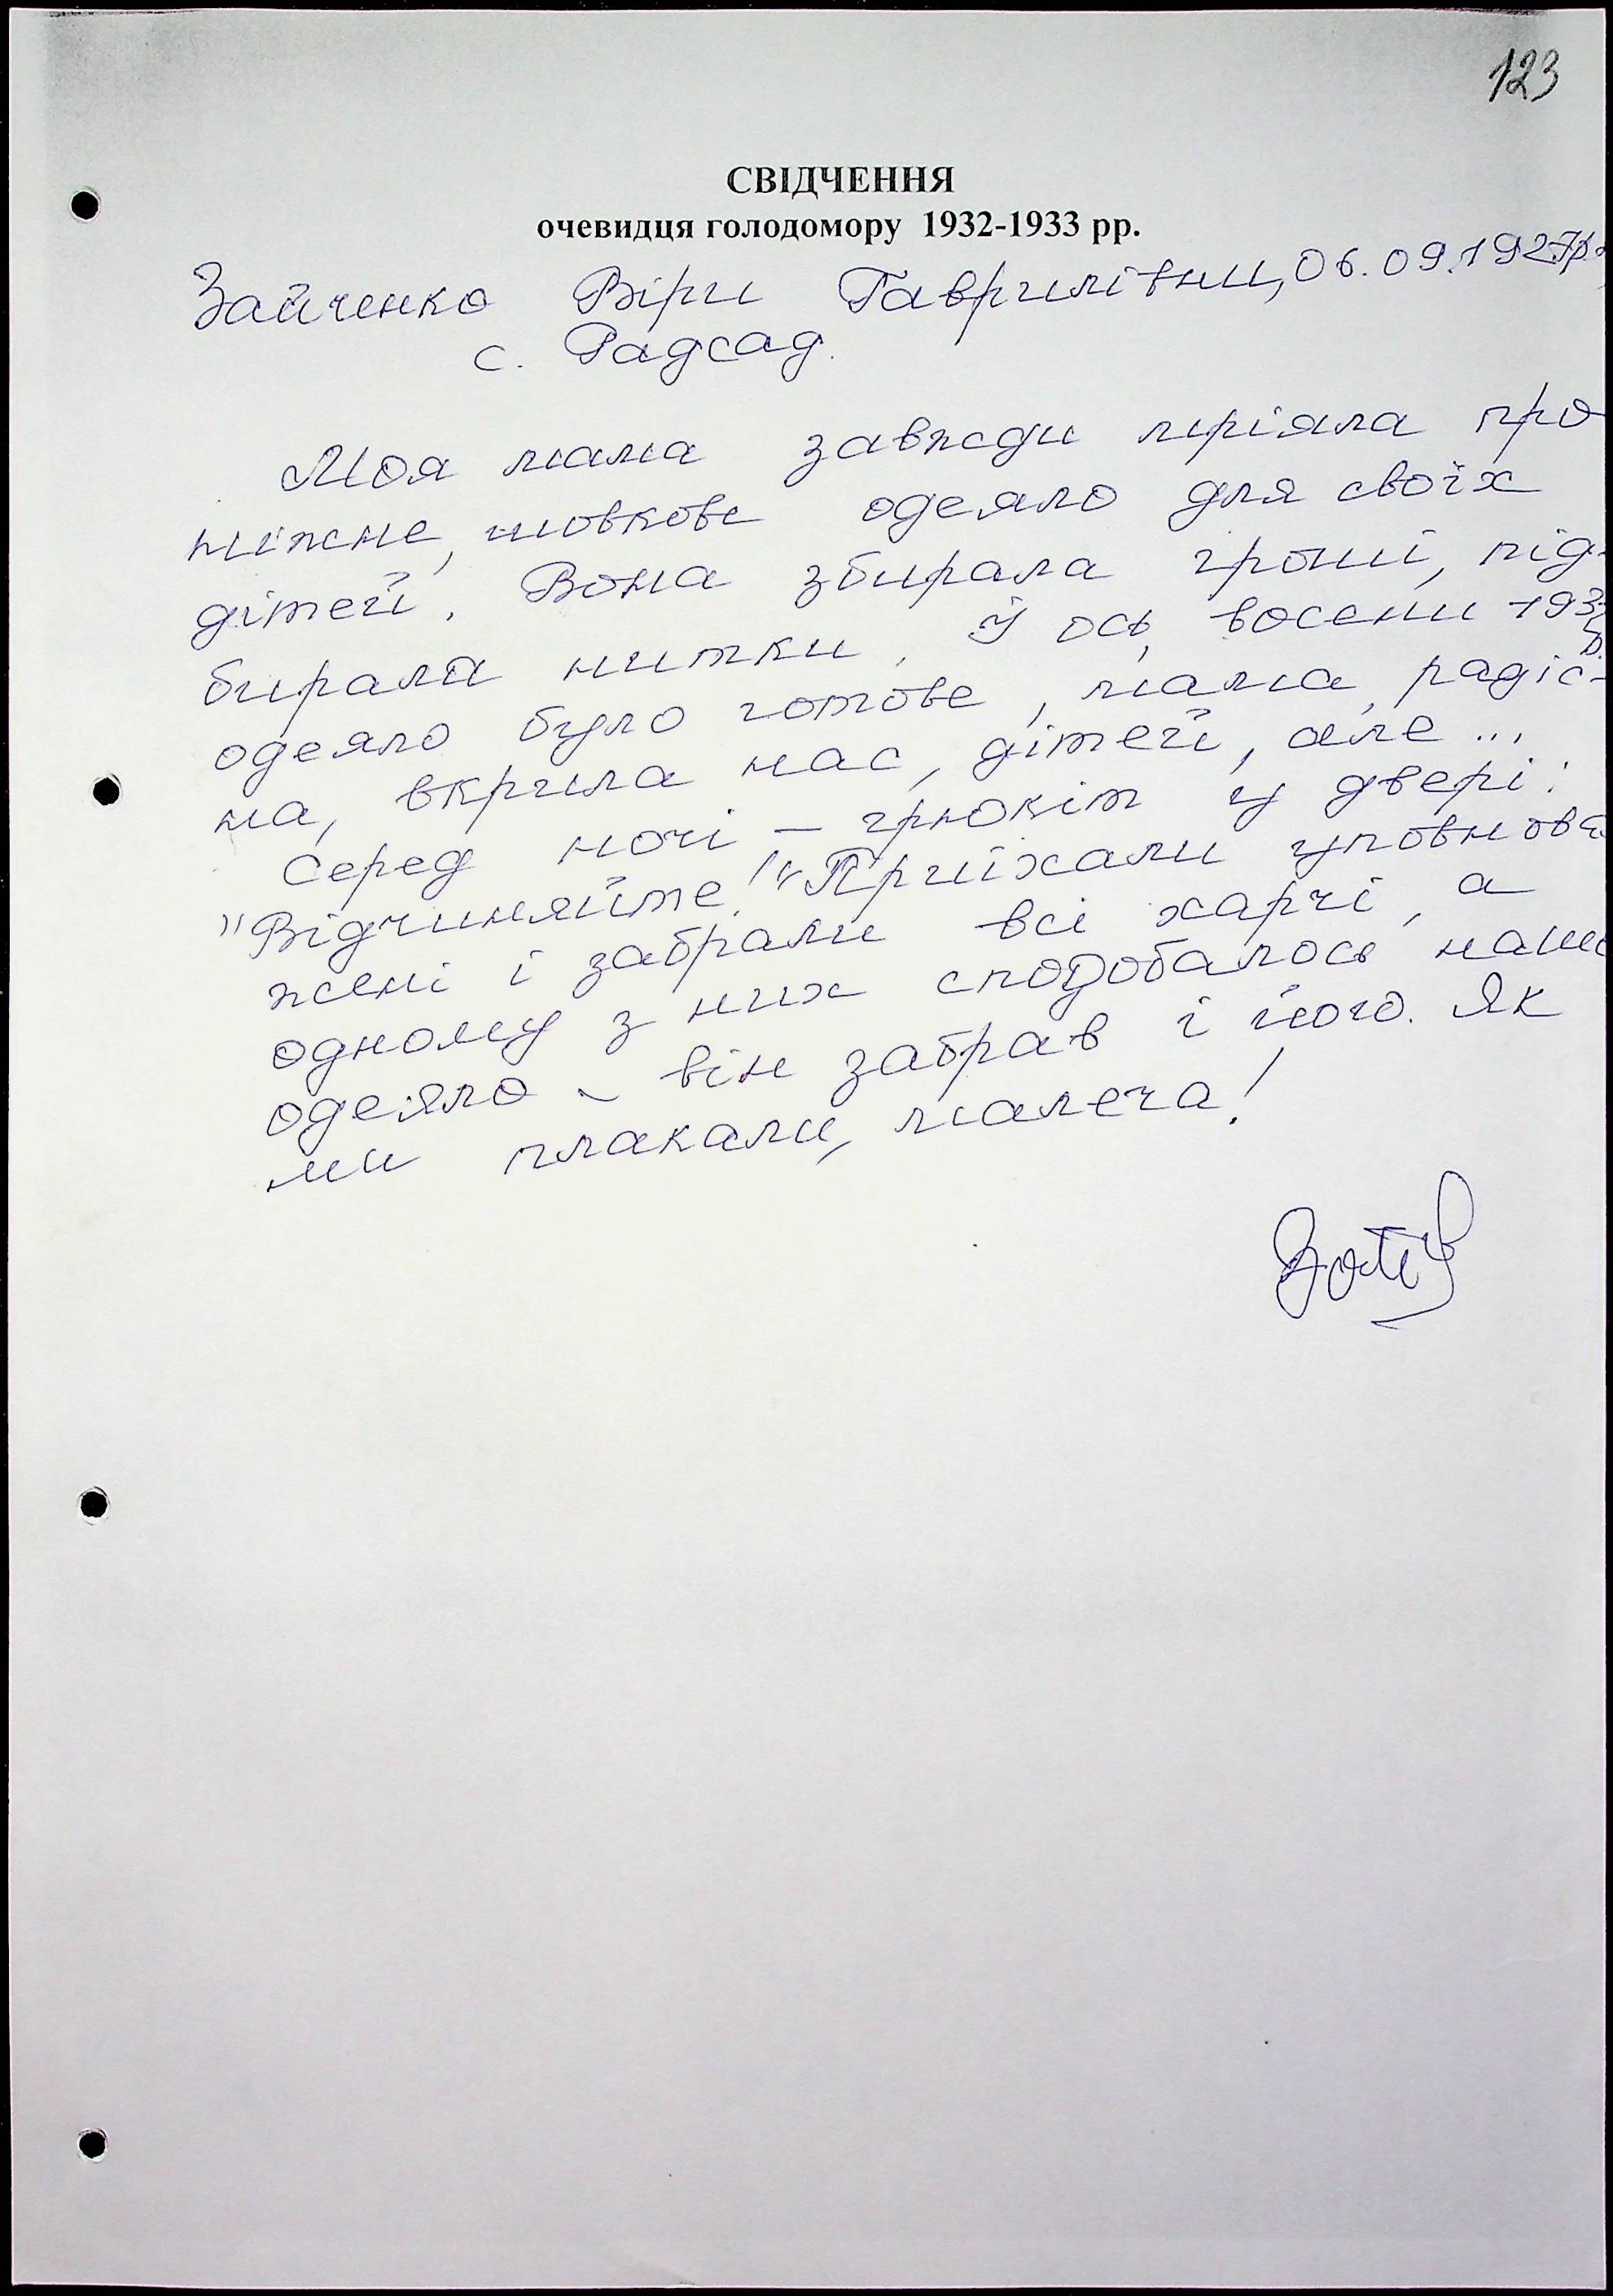 123
СВІДЧЕННЯ
очевидця голодомору 1932-1933 рр.
Зайченко Віри Гаврилівни, 06.09.1927р.
с. Радсад.
Моя мама завжди мріяла про
ніжне, шовкове одеяло для своїх
дітей. Вона збирала гроші, під-
бирала нитки. Й ось, восени
одеяло було готове, мама, радіс-
на, вкрила нас, дітей, але ...
Серед ночі – грюкіт у двері:
"Відчиняйте!" Приїхали уповнова-
жені і забрали всі харчі, а
одному з них сподобалось наше
одеяло – він забрав і його. Як
ми плакали, малеча!